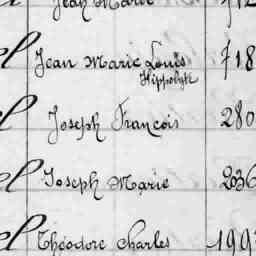 Jean Marie 712
el Jean Marie Louis 718
Hippolyte
el Joseph François 280
el Joseph Marie 2036
el Théodore Charles 199